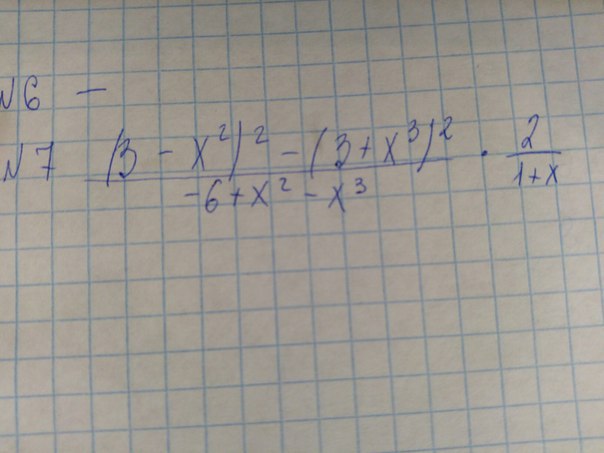 N6 —
N7 ((3 - x²)² - (3 + x³)²)/(-6 + x² - x³) · 2/(1 + x)